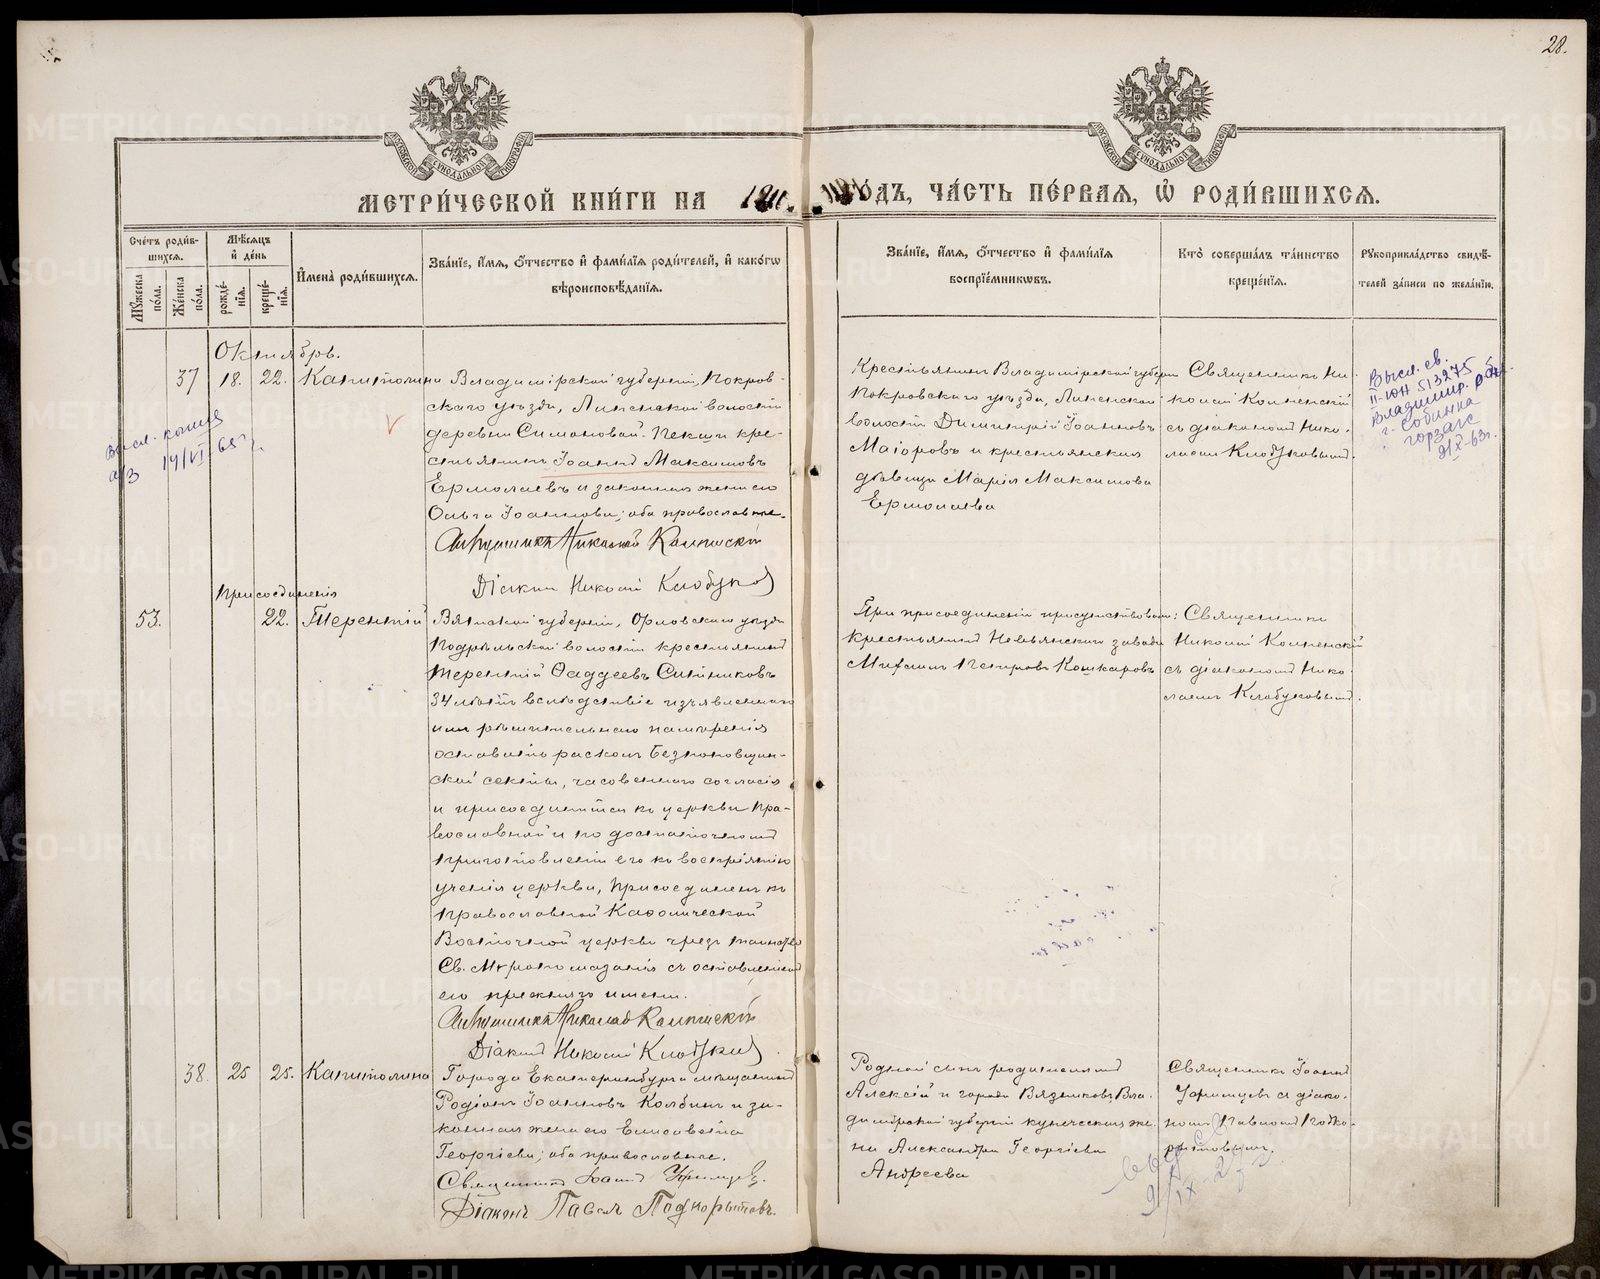 28.
МОСКОВСКОЙ СУНОДАЛЬНОЙ ТИПОГРАФІИ
МОСКОВСКОЙ СУНОДАЛЬНОЙ ТИПОГРАФІИ
МЕТРИ́ЧЕСКОЙ КНИ́ГИ НА
ГО́ДЪ, ЧА́СТЬ ПЕ́РВАЯ, Ѡ РОДИ́ВШИХСЯ.
Сче́тъ роди́вшихся.
Му́жеска по́ла.
Же́нска по́ла.
Мѣ́сяцъ и де́нь
рожде́нія.
креще́нія.
И҆мена̀ роди́вшихся.
Зва́ніе, и҆́мя, ѻ҆́тчество и҆ фами́лія роди́телей, и҆ како́гѡ
вѣроисповѣ́данія.
Зва́ніе, и҆́мя, ѻ҆́тчество и҆ фами́лія
воспріе́мникѡвъ.
Кто̀ соверша́лъ та́инство
креще́нія.
Рукоприкла́дство свидѣ́-
телей за́писи по жела́нію.
Октябрь.
37 18. 22. Капитолина
Владимірской губерніи, Покров-
скаго уѣзда, Липенской волости
деревни Симоновой
крестьянинъ Іоаннъ Максимовъ
Ермолаевъ и законная жена его
Ольга Іоаннова; оба православные.
Священникъ Николай
Діаконъ Николай Клобуковъ
Крестьянинъ Владимірской губерніи
Покровскаго уѣзда, Липенской
волости Димитрій Іоанновъ
Маіоровъ и крестьянская
дѣвица Марія Максимова
Ермолаева
Священникъ Ни-
колай
съ діакономъ Нико-
лаемъ Клобуковымъ.
Высл. св.
II-ЮН 513275
Владимир. обл.
г. Собинка
горзагс
X-63г.
высл. копия
а/з 14/VI 65 г.
Присоединенія
53. 22. Терентій
Вятской губерніи, Орловскаго уѣзда
Подрѣльской волости крестьянинъ
Терентій Ѳаддеевъ Ситниковъ
34 лѣтъ вслѣдствіе изъявленнаго
имъ рѣшительнаго намѣренія
оставить расколъ Безпоповщин-
ской секты, часовеннаго согласія
и присоединиться къ церкви Пра-
вославной и по достаточномъ
приготовленіи его къ воспріятію
ученія церкви, присоединенъ къ
православной Каѳолической
Восточной церкви чрезъ таинство
Св. Мѵропомазанія съ оставленіемъ
его прежняго имени.
Священникъ Николай
Діаконъ Николай Клобуковъ
При присоединеніи присутствовали:
крестьянинъ Невьянскаго завода
Петровъ Кошкаровъ
Священникъ
Николай
съ діакономъ Нико-
лаемъ Клобуковымъ.
38. 25 25. Капитолина
Города Екатеринбурга мѣщанинъ
Родіонъ Іоанновъ Колбинъ и за-
конная жена его Елисавета
Георгіева; оба православные.
Священникъ Іоаннъ
Діаконъ Павелъ Подкорытовъ.
Родной сынъ родителей
Алексій и города Вязниковъ Вла-
димірской губерніи купеческая же-
на Александра Георгіева
Андреева
Священникъ Іоаннъ
съ діако-
номъ Павломъ Подко-
рытовымъ.
METRIKI.GASO-URAL.RU